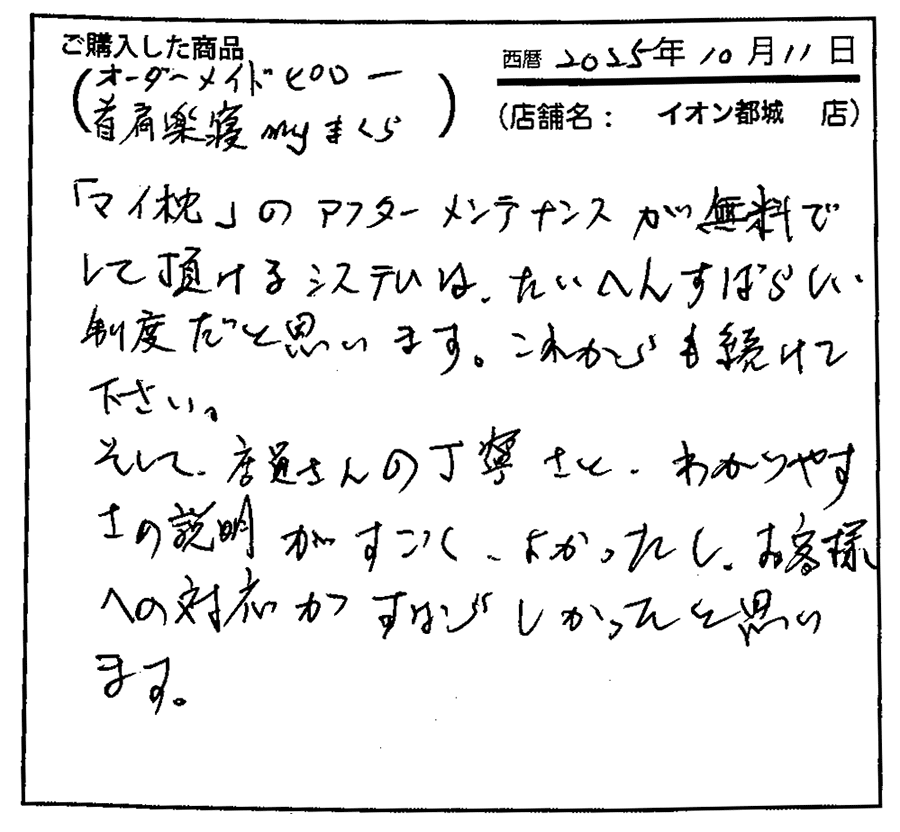 ご購入した商品
西暦 2025年 10月 11日
(オーダーメイドピロー
首肩楽寝 myまくら)
(店舗名： イオン都城 店)
「マイ枕」のアフターメンテナンスが無料で
して頂けるシステムは、たいへんすばらしい
制度だと思います。これからも続けて
下さい。
そして、店員さんの丁寧さと、わかりやす
さの説明がすごく、よかったし、お客様
への対応がすばらしかったと思い
ます。